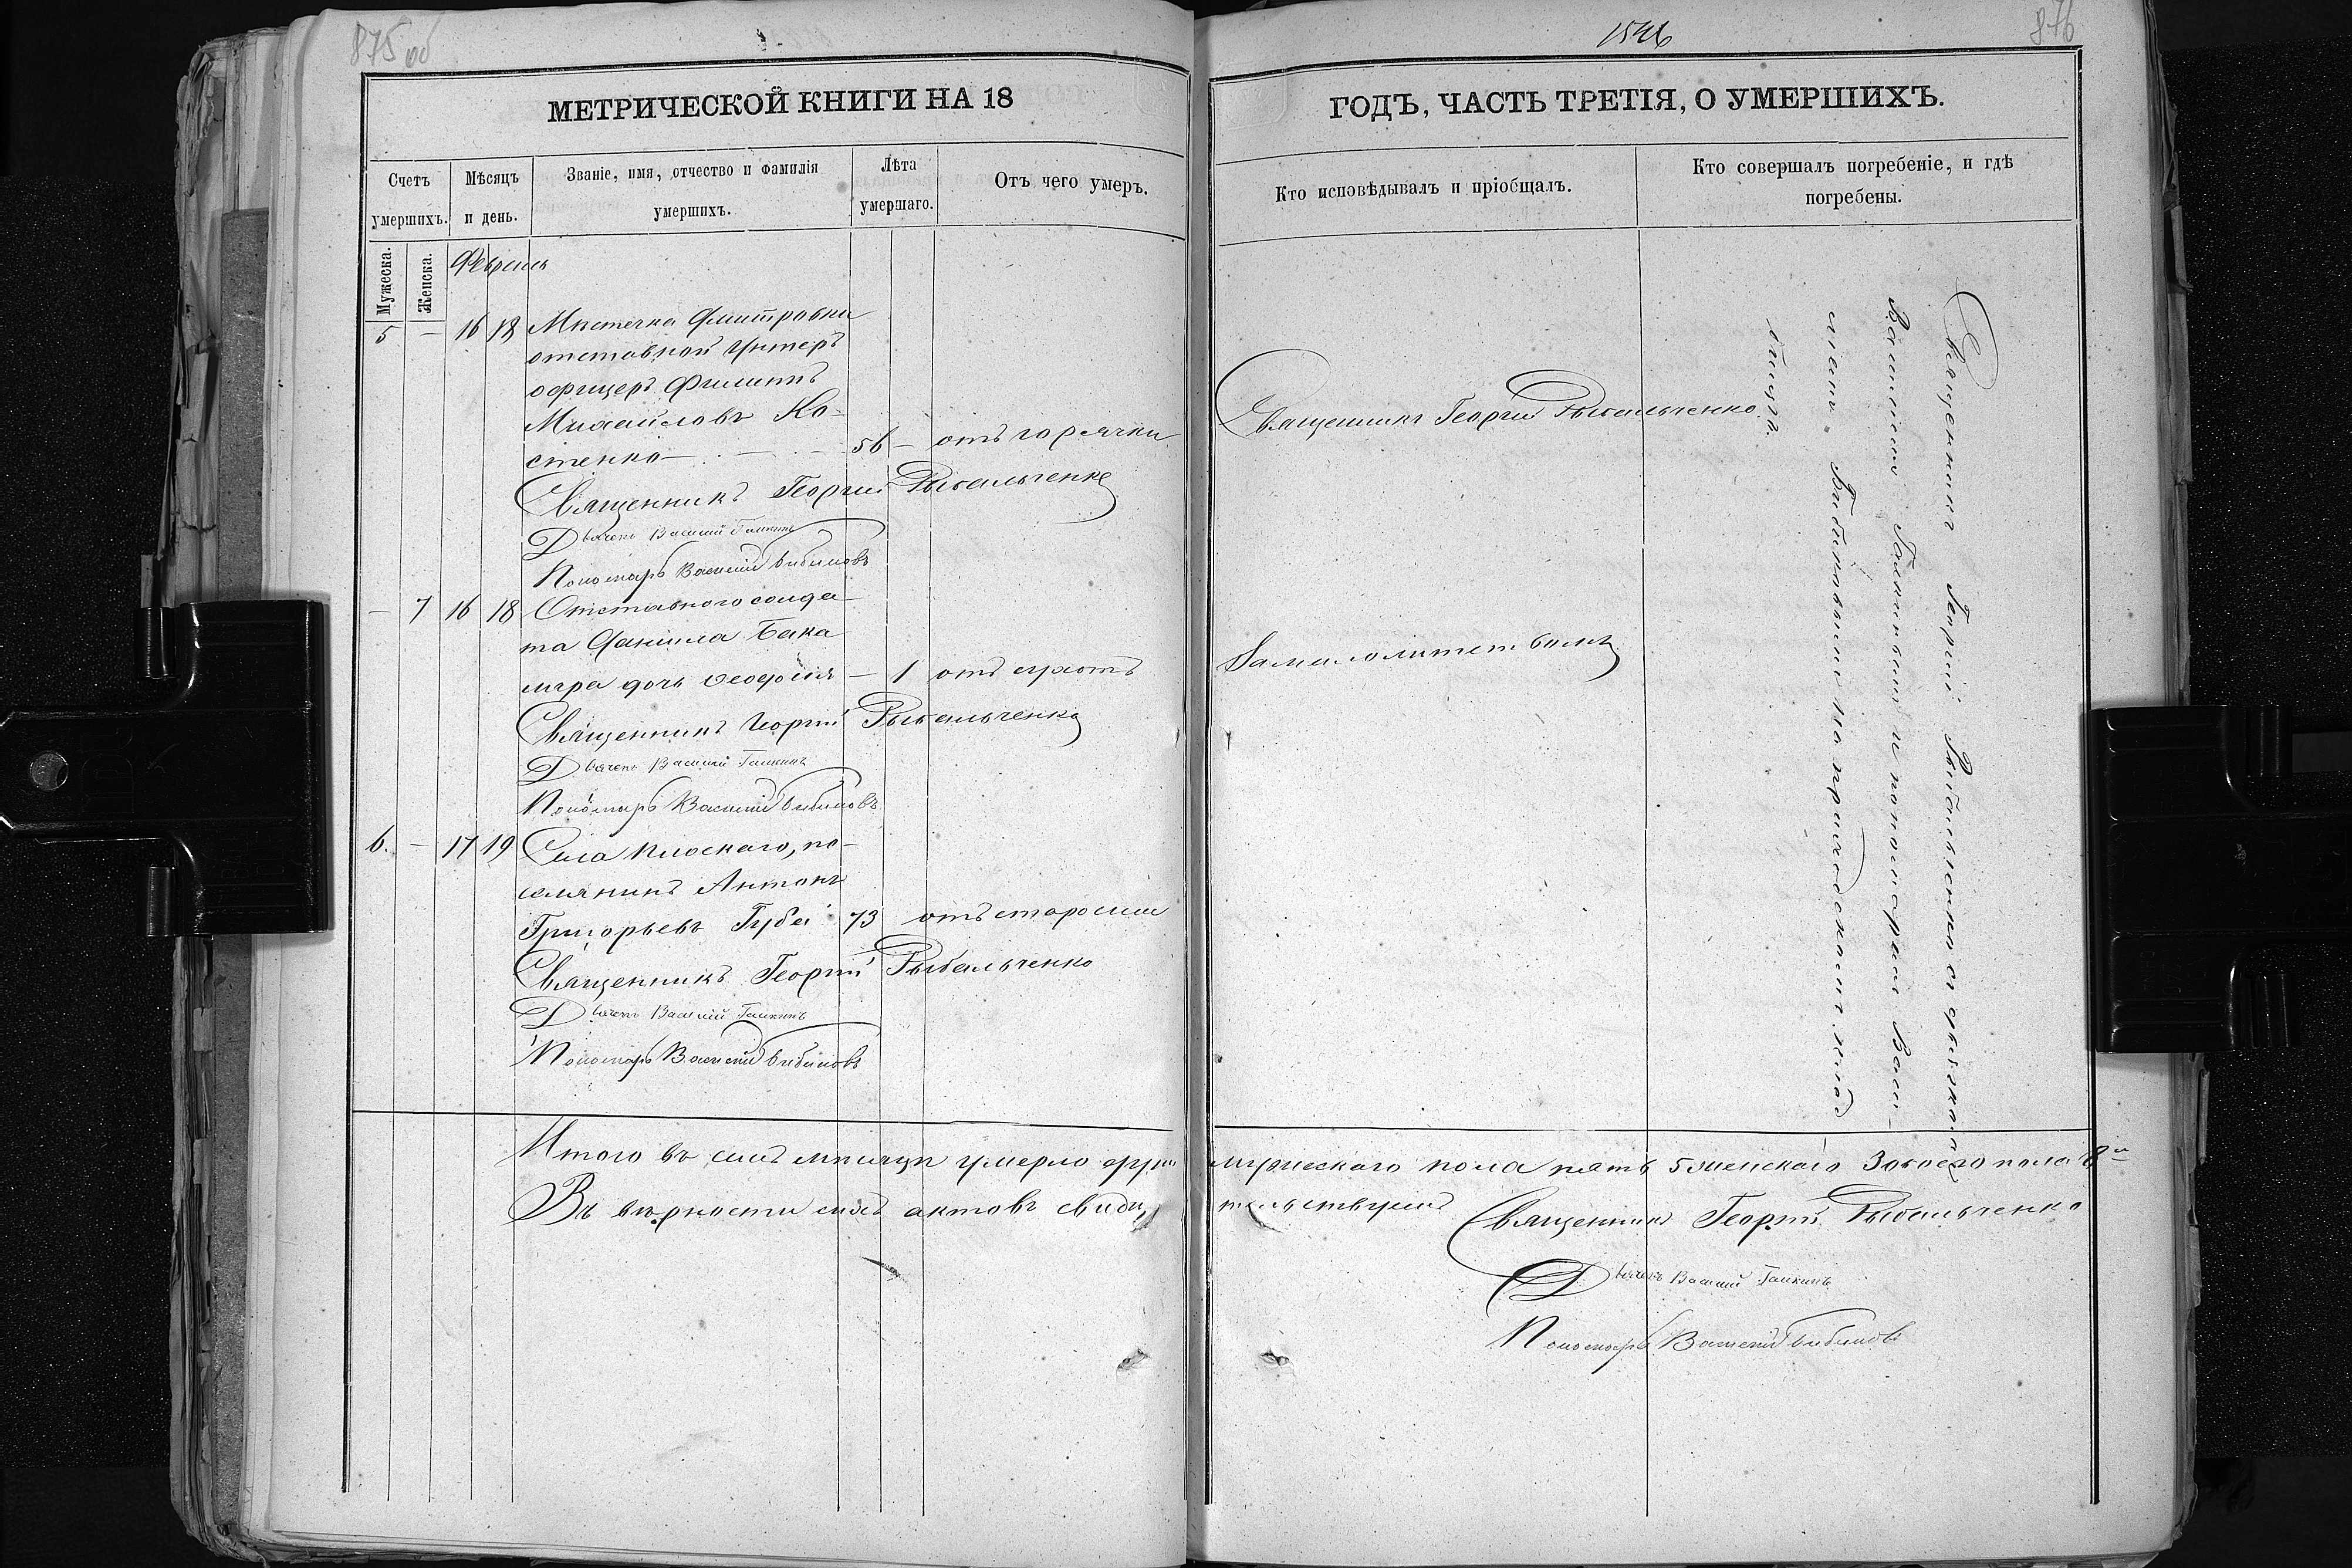 875 об
МЕТРИЧЕСКОЙ КНИГИ НА 18
Счетъ умершихъ.
Мѣсяцъ и день.
Званіе, имя, отчество и фамилія умершихъ.
Лѣта умершаго.
Отъ чего умеръ.
Мужеска.
Женска.
Февраль
5 — 16 18 Мѣстечка Дмитровки
отставной Унтеръ
офицеръ Филиппъ
Михайловъ Ко-
стенко — 56 — отъ горячки
Священникъ Георгій Рыбальченко
Дьячекъ Василій Галкинъ
Пономарь Василій Бибиковъ
— 7 16 18 Отставного солда
та Даніила
дочь Феодосія — 1 отъ
Священникъ Георгій Рыбальченко
Дьячекъ Василій Галкинъ
Пономарь Василій Бибиковъ
6. — 17 19 Села Плоскаго, по-
селянинъ Антонъ
Григорьевъ Губа 73 отъ старости
Священникъ Георгій Рыбальченко
Дьячекъ Василій Галкинъ
Пономарь Василій Бибиковъ
Итого въ семъ мѣсяцѣ умерло
Въ вѣрности сихъ актовъ свидѣ
1546
876
ГОДЪ, ЧАСТЬ ТРЕТІЯ, О УМЕРШИХЪ.
Кто исповѣдывалъ и пріобщалъ.
Кто совершалъ погребеніе, и гдѣ
погребены.
Священникъ Георгій Рыбальченко
За малолѣтствомъ
Священникъ Георгій Рыбальченко съ дьячкомъ
Василіемъ Галкинымъ и пономаремъ Васи-
ліемъ Бибиковымъ на приходскомъ клад
бищѣ.
мужескаго пола пять 5 женскаго обоего пола
тельствуемъ
Священникъ Георгій Рыбальченко
Дьячекъ Василій Галкинъ
Пономарь Василій Бибиковъ